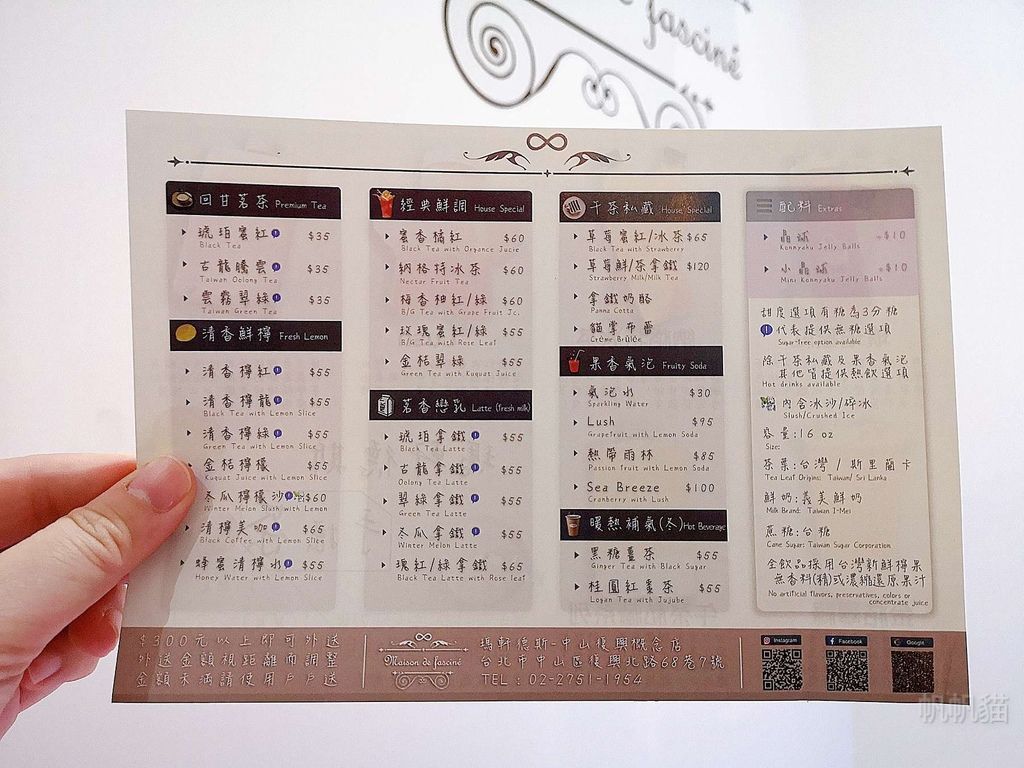 fasciné
回甘茗茶 Premium Tea
琥珀蜜紅 $35
Black Tea
古龍騰雲 $35
Taiwan Oolong Tea
雲霧翠綠 $35
Taiwan Green Tea
清香鮮檸 Fresh Lemon
清香檸紅 $55
Black Tea with Lemon Slice
清香檸龍 $55
Black Tea with Lemon Slice
清香檸綠 $55
Green Tea with Lemon Slice
金桔檸檬 $55
Kuquat Juice with Lemon Slice
冬瓜檸檬沙 $60
Winter Melon Slush with Lemon
清檸美咖 $65
Black Coffee with Lemon Slice
蜂蜜清檸水 $55
Honey Water with Lemon Slice
經典鮮調 House Special
蜜香橘紅 $60
Black Tea with Organce Jucie
納格特冰茶 $60
Nectar Fruit Tea
梅香柚紅/綠 $60
B/G Tea with Grape Fruit Jc.
玫瑰蜜紅/綠 $55
B/G Tea with Rose Leaf
金桔翠綠 $55
Green Tea with Kuquat Juice
茗香戀乳 Latte (fresh milk)
琥珀拿鐵 $55
Black Tea Latte
古龍拿鐵 $55
Oolong Tea Latte
翠綠拿鐵 $55
Green Tea Latte
冬瓜拿鐵 $55
Winter Melon Latte
瑰紅/綠拿鐵 $65
Black Tea Latte with Rose leaf
千茶私藏 House Special
草莓蜜紅/冰茶 $65
Black Tea with Strawberry
草莓鮮/茶拿鐵 $120
Strawberry Milk/Milk Tea
拿鐵奶酪
Panna Cotta
貓掌布蕾
Crème Brûlée
果香氣泡 Fruity Soda
氣泡水 $30
Sparkling Water
Lush $95
Grapefruit with Lemon Soda
熱帶雨林 $85
Passion fruit with Lemon Soda
Sea Breeze $100
Cranberry with Lush
暖熱補氣(冬) Hot Beverage
黑糖薑茶 $55
Ginger Tea with Black Sugar
桂圓紅棗茶 $55
Logan Tea with Jujube
配料 Extras
晶球 +$10
Konnyaku Jelly Balls
小晶球 +$10
Mini Konnyaku Jelly Balls
甜度選項有糖為3分糖
代表提供無糖選項
Sugar-free option available
除千茶私藏及果香氣泡
其他皆提供熱飲選項
Hot drinks available
內含冰沙/碎冰
Slush/Crushed Ice
容量:16 oz
Size:
茶葉:台灣 / 斯里蘭卡
Tea Leaf Origins: Taiwan/ Sri Lanka
鮮奶:義美鮮奶
Milk Brand: Taiwan I-Mei
蔗糖:台糖
Cane Sugar: Taiwan Sugar Corporation
全飲品採用台灣新鮮檸果
無香料(精)或濃縮還原果汁
No artificial flavors, preservatives, colors or
concentrate juice
$300元以上即可外送
外送金額視距離而調整
金額未滿請使用戶戶送
Maison de fasciné
瑪軒德斯-中山復興概念店
台北市中山區復興北路68巷7號
TEL : 02-2751-1954
Instagram
Facebook
Google
帆帆貓